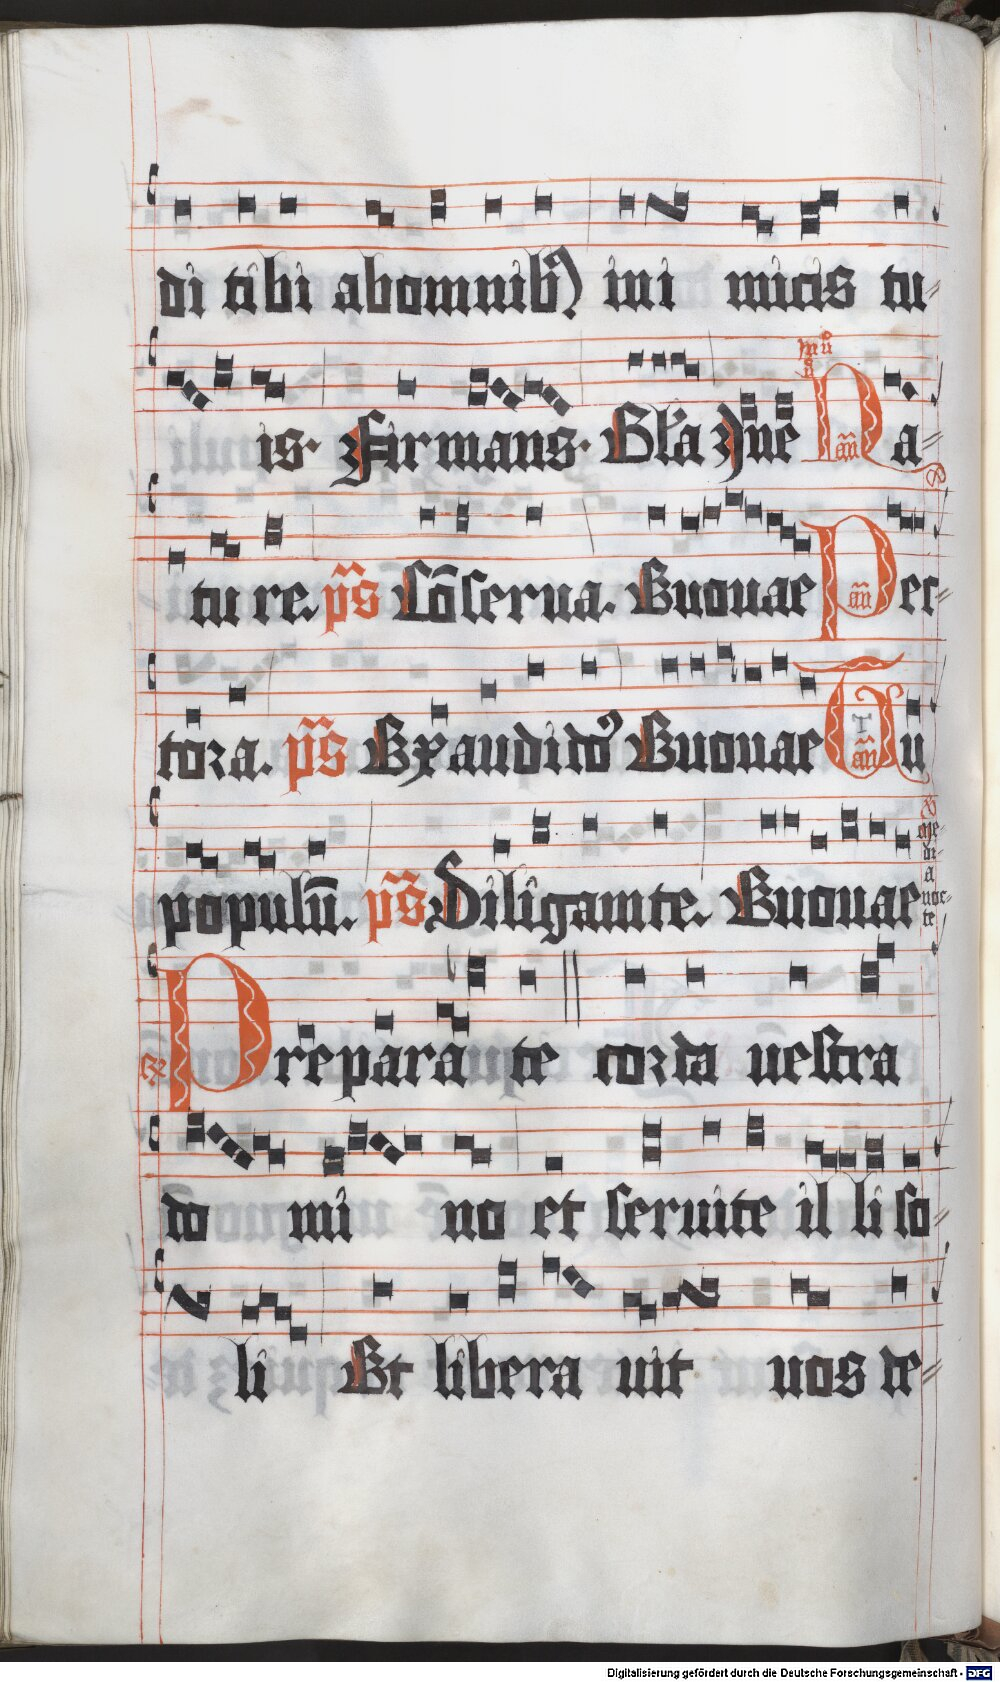 di tibi ab omnib⁹ ini micis tu⸗
is· Firmans· Gl'a In e in ii° ñ an̄ Na⸗
tu re. p̄s Cōserua. Euouae an̄ Per⸗
tora. p̄s Exaudi do⁹ Euouae an̄ Tu
populū. p̄s Diligamte. Euouae
me⸗
di⸗
a
noc⸗
te
Rx Preparate corda vestra
do mi no et seruite il li so⸗
li Et libera uit uos de⸗
Digitalisierung gefördert durch die Deutsche Forschungsgemeinschaft - DFG